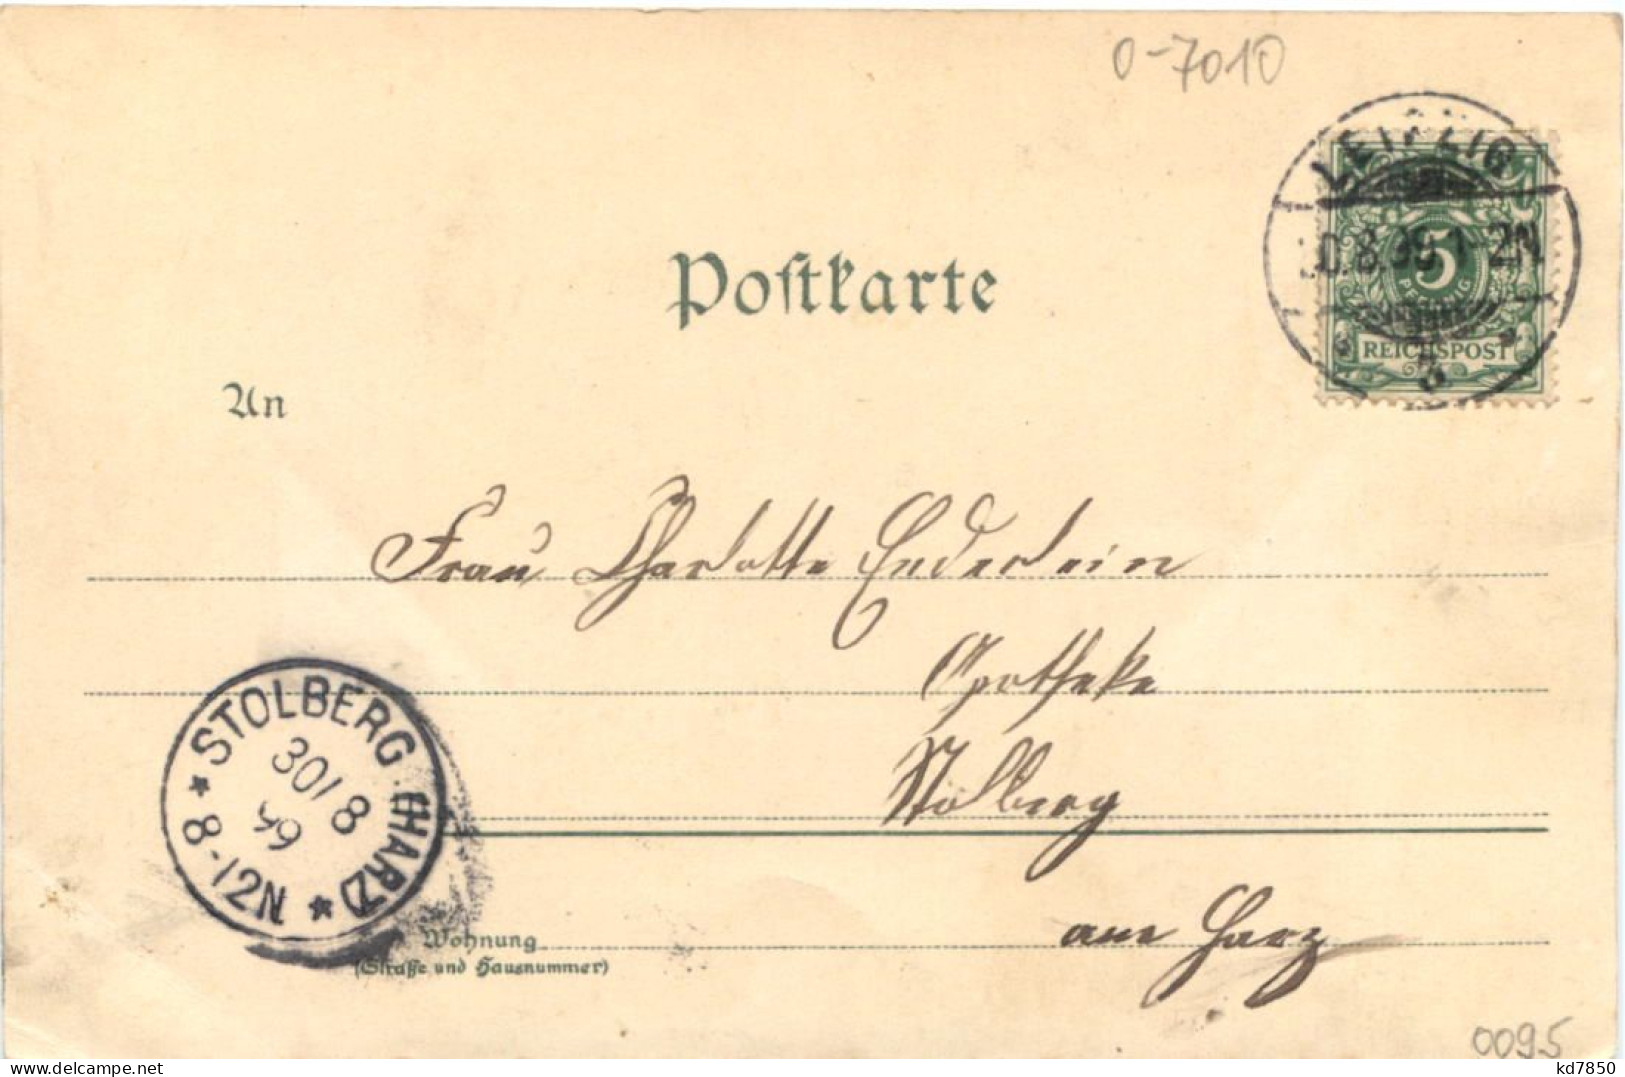 0-7010
LEIPZIG
30.8.99 1-2N
8
5
PFENNIG
REICHSPOST
Postkarte
An
Frau Charlotte Enderlein
Apotheke
Stolberg
am Harz
STOLBERG (HARZ)
30/8
99
8-12N
Wohnung
(Straße und Hausnummer)
0095
delcampe.net
kd7850